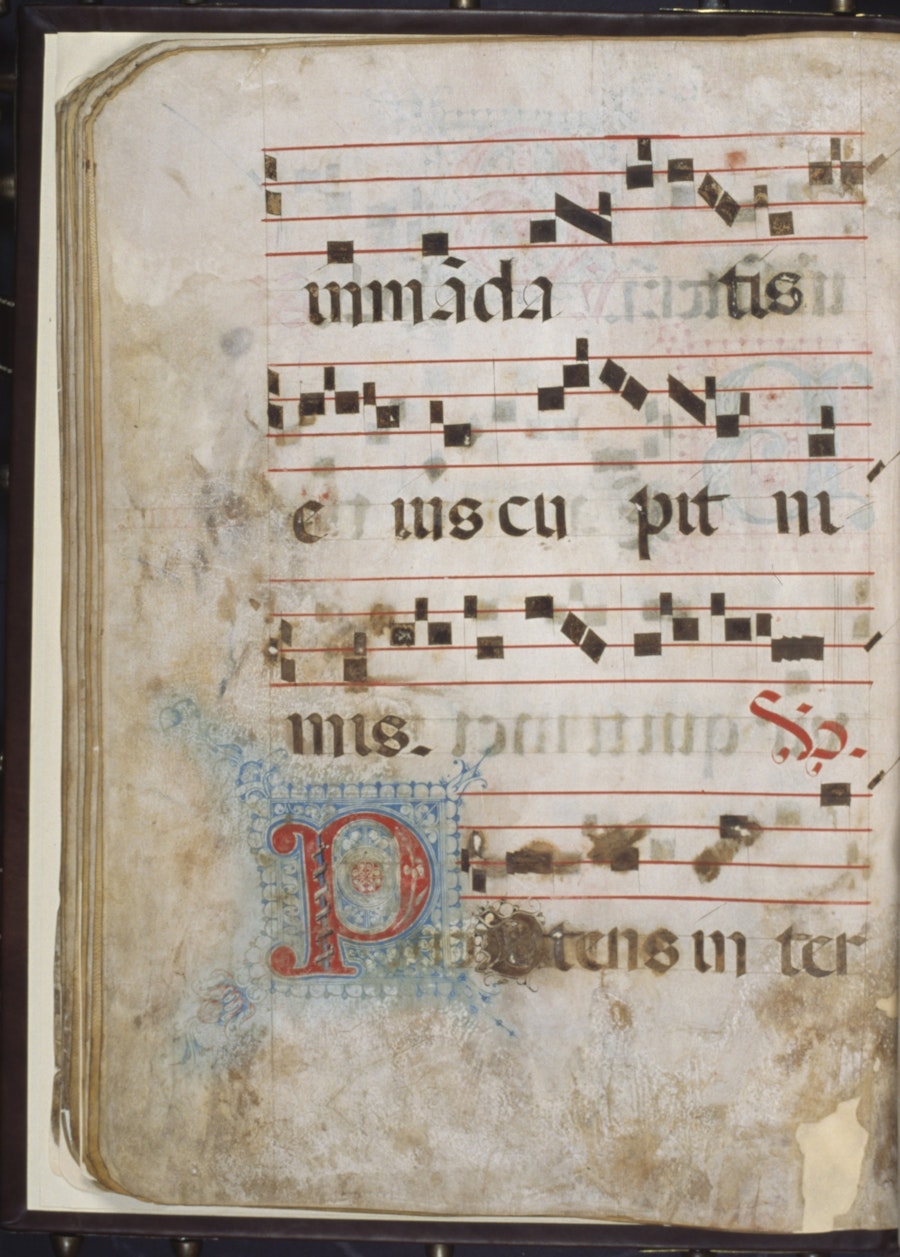 in mādatis
eius cupit ni
mis. Ps.
Potens in ter